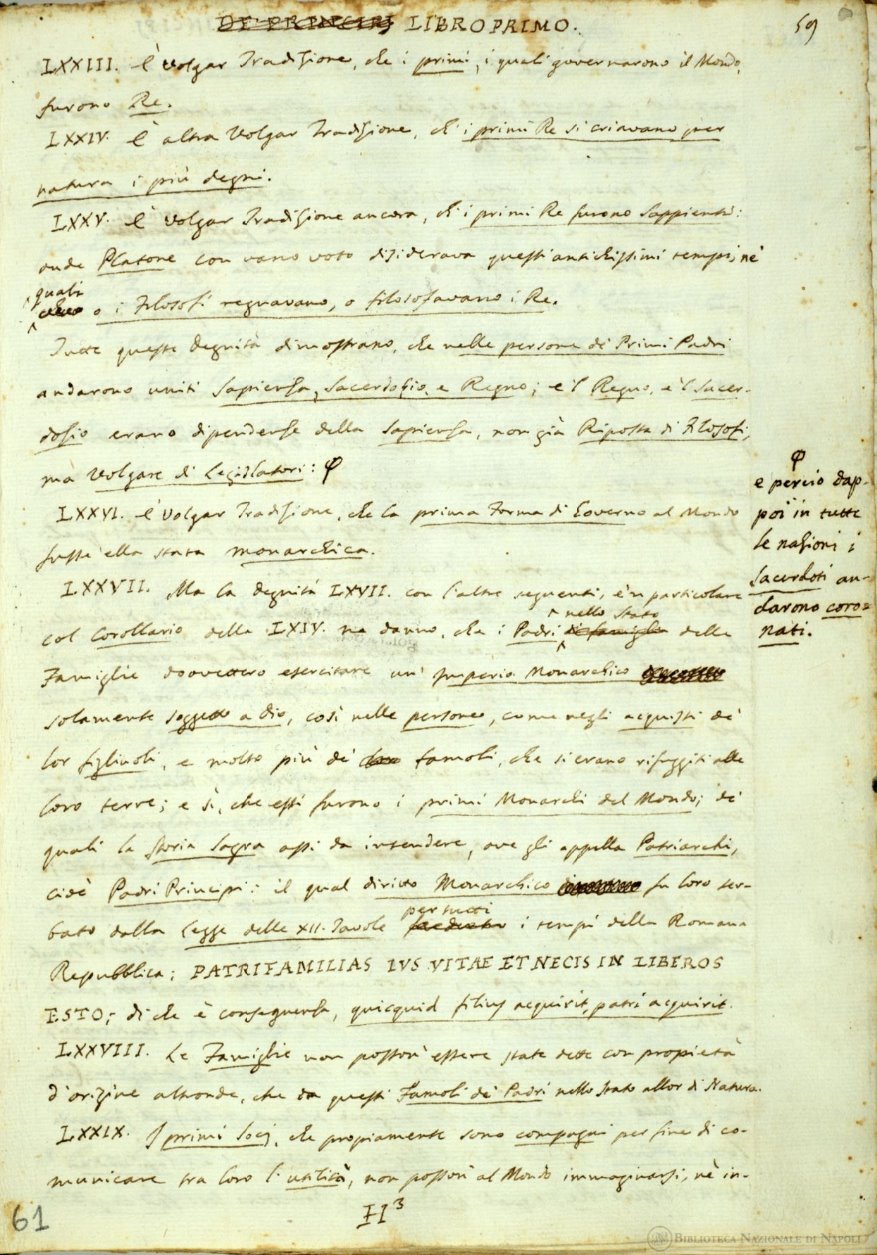 DE' PRINCIPJ LIBRO PRIMO. 59
LXXIII. È volgar Tradizione, che i primi, i quali governarono il Mondo,
furono Re.
LXXIV. È altra volgar Tradizione, ch'i primi Re si criavano per
natura i più degni.
LXXV. È volgar Tradizione ancora, ch'i primi Re furono Sappienti:
onde Platone con vano voto disiderava questi antichissimi tempi, ne'
quali
o i Filosofi regnavano, o filosofavano i Re.
Tutte queste Degnità dimostrano, che nelle persone de' Primi Padri
andarono uniti Sapienza, Sacerdozio, e Regno; e 'l Regno, e 'l Sacer-
dozio erano dipendenze della Sapienza, non già Riposta di Filosofi,
ma Volgare di Legislatori: φ
φ
e perciò dap-
poi in tutte
le nazioni i
Sacerdoti an-
darono coro=
nati.
LXXVI. È volgar Tradizione, che la prima Forma di Governo al Mondo
fusse ella stata monarchica.
LXXVII. Ma la Degnità LXVII. con l'altre seguenti, e 'n particolare
col Corollario della LXIV. ne danno, che i Padri di famiglia delle
nello Stato
Famiglie dovettero esercitare un' Imperio Monarchico
solamente soggetto a Dio, così nelle persone, come negli acquisti de'
lor figliuoli, e molto più de' loro famoli, che si erano rifuggiti alle
loro terre; e sì, che essi furono i primi Monarchi del Mondo; de'
quali la Storia Sagra assi da intendere, ove gli appella Patriarchi,
cioè Padri Principi: il qual diritto Monarchico fu loro ser-
bato dalla Legge delle XII. Tavole i tempi della Romana
per tutti
Repubblica: PATRIFAMILIAS IVS VITAE ET NECIS IN LIBEROS
ESTO; di che è conseguenza, quicquid filius acquirit, patri acquirit.
LXXVIII. Le Famiglie non posson' essere state dette con propietà
d'origine altronde, che da questi Famoli de' Padri nello Stato allor di Natura.
LXXIX. I primi Socj, che propiamente sono compagni per fine di co-
municare tra loro l'utilità, non posson' al Mondo immaginarsi, nè in-
H3
61
BIBLIOTECA NAZIONALE DI NAPOLI